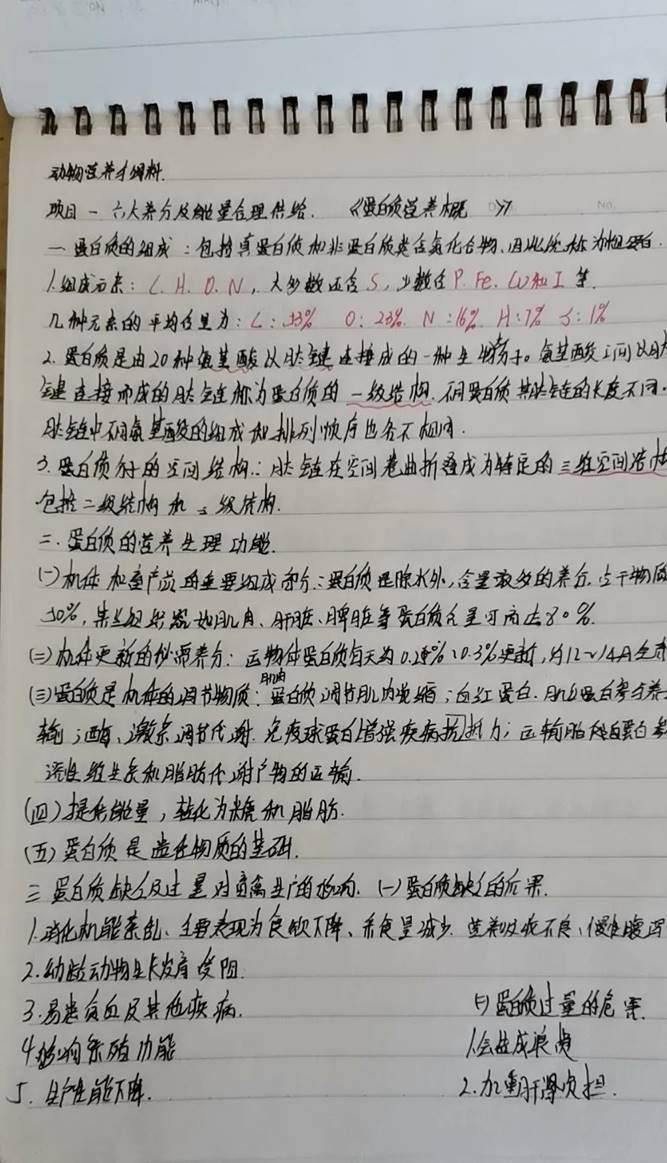 动物营养与饲料.
项目一 六大养分及能量合理供给. 《蛋白质营养概 》
一 蛋白质的组成：包括真蛋白质和非蛋白质类含氮化合物、因此统称为粗蛋白.
1.组成元素：C. H. O. N，大多数还含S，少数含P. Fe. Cu和I 等.
几种元素的平均含量为：C：53% O：23%. N：16% H：7% S：1%
2. 蛋白质是由20种氨基酸以肽键连接成的一种生物分子。氨基酸之间以肽
键连接而成的肽链称为蛋白质的一级结构. 不同蛋白质其肽链的长度不同.
肽链中不同氨基酸的组成和排列顺序也各不相同.
3. 蛋白质分子的空间结构：肽链在空间卷曲折叠成为特定的三维空间结构
包括二级结构和三级结构.
二. 蛋白质的营养生理功能.
(一)机体和畜产品的重要组成部分：蛋白质是除水外,含量最多的养分,占干物质
50%, 某些组织器 如肌肉、肝脏、脾脏等蛋白质含量可高达80%.
(二)机体更新的必需养分：动物体蛋白质每天约0.25%~0.3%更新,约12~14月全
(三)蛋白质是机体的调节物质：肌肉蛋白质调节肌肉收缩；血红蛋白. 肌红蛋白参与养
输；酶、激素调节代谢. 免疫球蛋白增强疾病抵抗力；运输脂
溶性维生素和脂肪代谢产物的运输.
(四)提供能量，转化为糖和脂肪.
(五)蛋白质是遗传物质的基础.
三 蛋白质缺乏及过量对畜禽生产的影响. (一)蛋白质缺乏的后果.
1.消化机能紊乱、主要表现为食欲下降、采食量减少. 营养吸收不良、慢性腹泻
2.幼龄动物生长发育受阻.
3.易患贫血及其他疾病. 蛋白质过量的危害.
4.影响繁殖功能 1.会造成浪费
5. 生产性能下降. 2.加重肝肾负担.